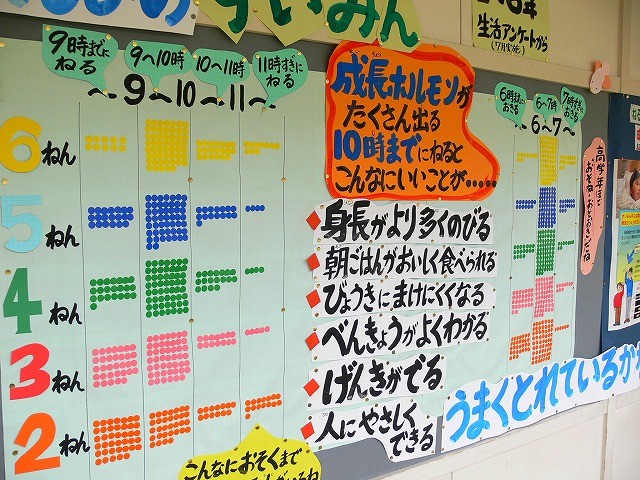 すいみん
生活アンケートから
(7月実施)
9時までに
ねる
9〜10時
10〜11時
11時すぎに
ねる
〜9〜10〜11〜
6ねん
5ねん
4ねん
3ねん
2ねん
成長ホルモンが
たくさん出る
10時までにねると
こんなにいいことが……
身長がより多くのびる
朝ごはんがおいしく食べられる
びょうきにまけにくくなる
べんきょうがよくわかる
げんきがでる
人にやさしく
できる
6時までに
おきる
6〜7時
7時すぎに
おきる
〜6〜7〜
高学年ほど
こんなにおそくまで
うまくとれているか